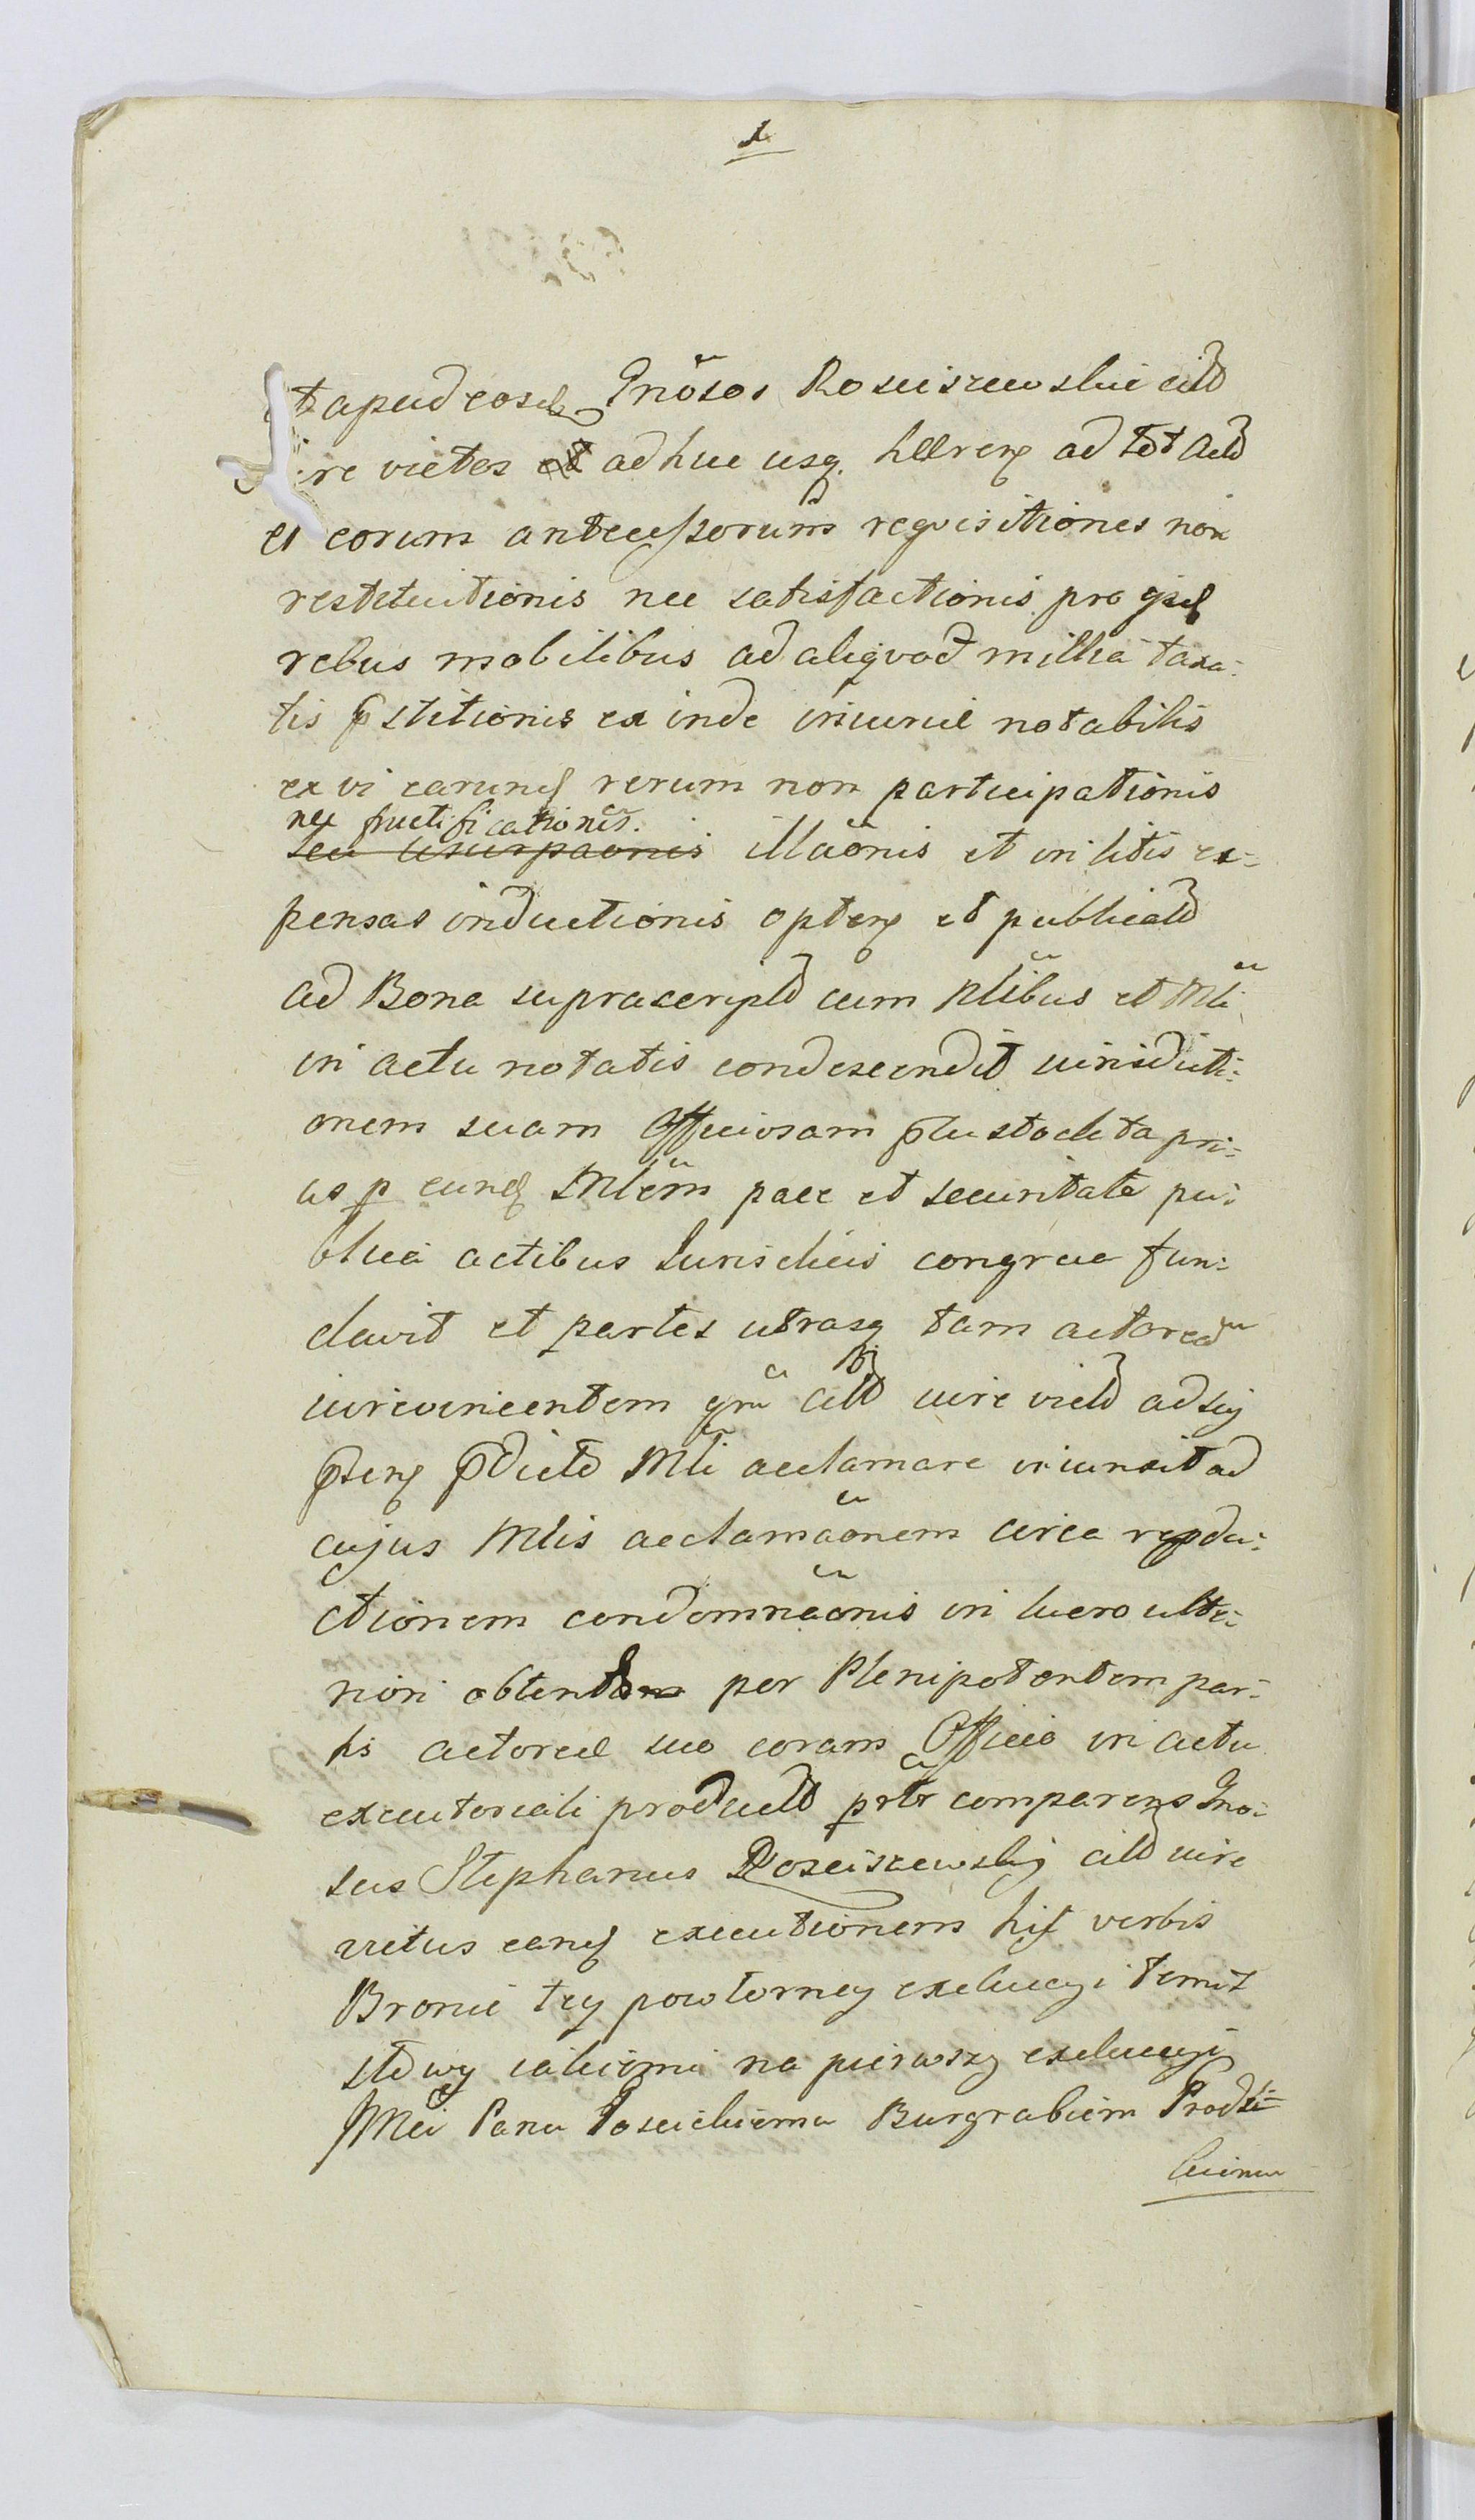 1
et apud eosd Gnosos Rosciszewskie citt
iure victos et adhuc usq. haeren ad tot Act
et eorum antecessorum requisitiones non
restitutionis nec satisfactionis pro gsd
rebus mobilibus ad aliquod millia taxa-
tis pstitionis ex inde iniuriae notabilis
ex vi earund rerum non participationis
nec fructificationis.
seu usurpaonis illaonis et in litis ex-
pensas inductionis opten et publicatt
ad Bona suprascriptt cum Nlibus et Mli
in actu notatis condescendit iurisdicti-
onem suam Officiosam plustodita pri-
us p eund Mlem pace et securitate pu-
blica actibus Iurisdicis congrue fun-
davit et partes utrasq tam actoream
iurevincentem qm citt iure victt ad sui
psen pdictt Mli acclamare iniunxit ad
cujus Mlis acclamaonem circa repdu-
ctionem condemnaonis in lucro ulte-
riori obtent per Plenipotentem par-
tis actoreae suo coram Officio in actu
executoriali productt psltr comparens Gno-
sus Stephanus Rosciszewski citt iure
victus eand executionem his verbis
Bronię tey powtorney exekucyi temiż
słowy iakiemi na pierwszy exekucyi
JMci Panu Pasciekiemu Burgrabiem